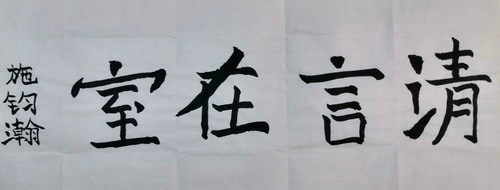 清言在室
施钧瀚